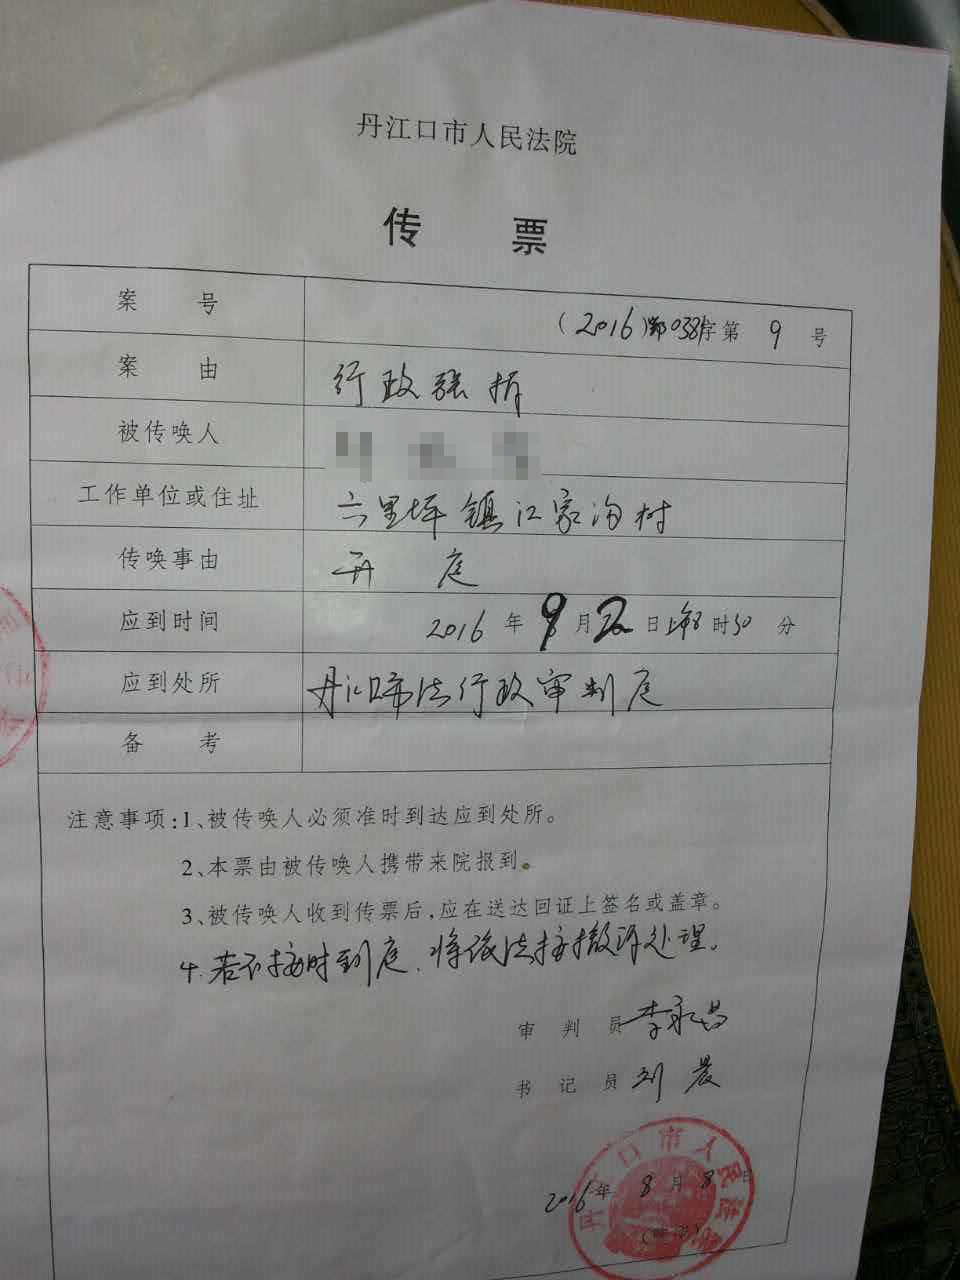 丹江口市人民法院
传 票
案 号 (2016)鄂0381字第 9 号
案 由 行政强拆
被传唤人
工作单位或住址 六里坪镇江家沟村
传唤事由 开 庭
应到时间 2016 年 9 月 2 日上午8时30 分
应到处所 丹江口市法行政审判庭
备 考
注意事项:1、被传唤人必须准时到达应到处所。
2、本票由被传唤人携带来院报到。
3、被传唤人收到传票后,应在送达回证上签名或盖章。
4.若不按时到庭,将依法按撤诉处理。
审 判 员 李永昌
书 记 员 刘晨
2016年 8 月 8 日
丹江口市人民法院